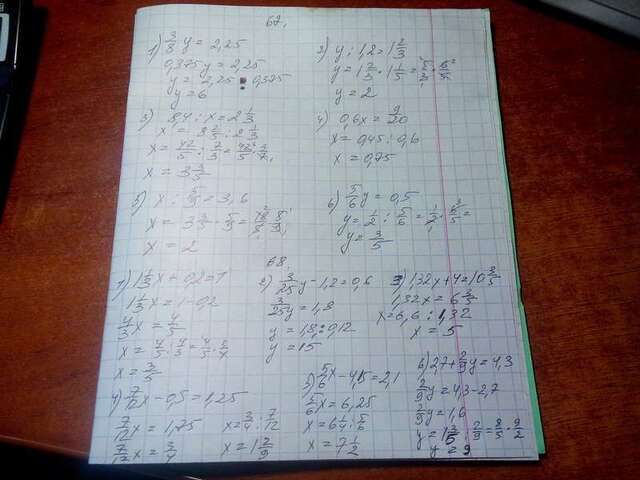 67.
1) 3/8 y = 2,25
0,375y = 2,25
y = 2,25 : 0,375
y = 6
2) y : 1,2 = 1 2/3
y = 1 2/3 · 1 1/5 = 5/3 · 6/5
y = 2
3) 8,4 : x = 2 1/3
x = 8 2/5 : 2 1/3
x = 42/5 : 7/3 = 42/5 · 3/7
x = 3 3/5
4) 0,6x = 9/20
x = 0,45 : 0,6
x = 0,75
5) x : 5/9 = 3,6
x = 2
6) 5/6 y = 0,5
y = 1/2 : 5/6 = 1/2 · 6/5 =
y = 3/5
68.
1) 1 1/3 x + 0,2 = 1
1 1/3 x = 1 - 0,2
4/3 x = 4/5
x = 3/5
2) 3/25 y - 1,2 = 0,6
3/25 y = 1,8
y = 1,8 : 0,12
y = 15
3) 1,32x + 4 = 10 3/5
1,32x = 6 3/5
x = 6,6 : 1,32
x = 5
4) 7/12 x - 0,5 = 1,25
7/12 x = 1,75
7/12 x = 3/4
x = 3/4 : 7/12
x = 1 2/7
5) 5/6 x - 4,15 = 2,1
5/6 x = 6,25
x = 6 1/4 : 5/6
x = 7 1/2
6) 2,7 + 2/9 y = 4,3
2/9 y = 4,3 - 2,7
2/9 y = 1,6
y = 1 3/5 : 2/9 = 8/5 · 9/2